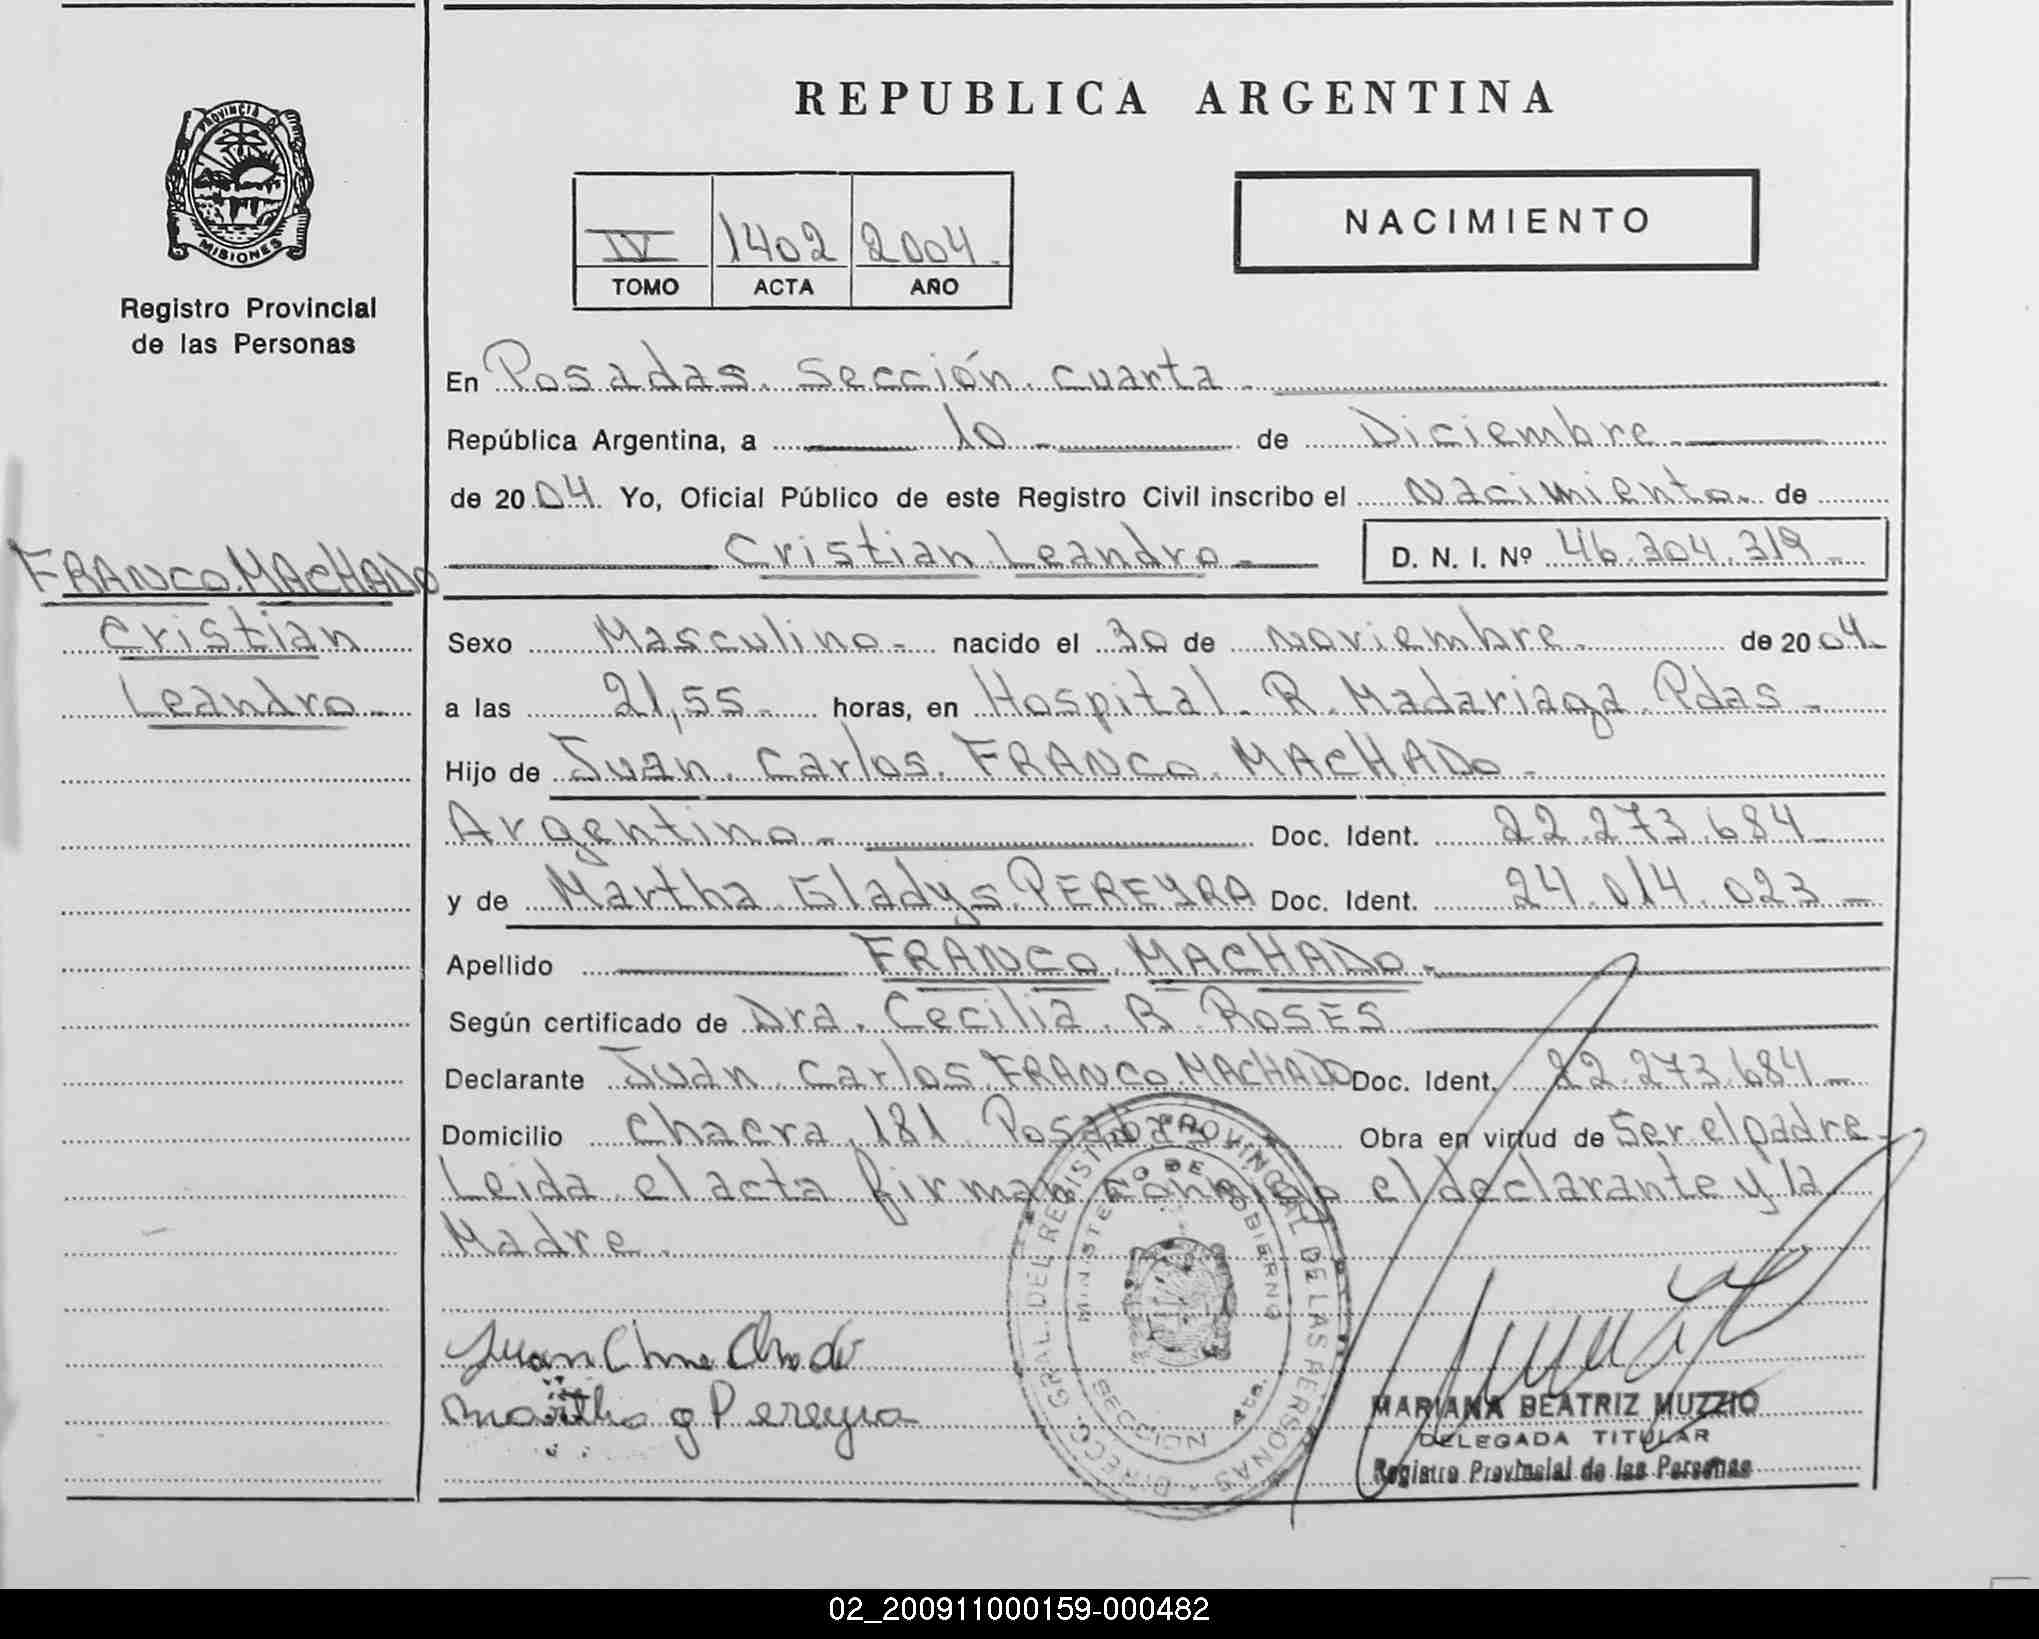 REPUBLICA ARGENTINA
PROVINCIA D MISIONES
Registro Provincial
de las Personas
IV 1402 2004.
TOMO ACTA AÑO
NACIMIENTO
En Posadas. Sección. cuarta.
República Argentina, a 10 - de Diciembre
de 2004. Yo, Oficial Público de este Registro Civil inscribo el Nacimiento. de
Cristian Leandro - D. N. I. Nº 46.304.319 -
FRANCO. MACHADO
Cristian
Leandro -
Sexo Masculino - nacido el 30 de noviembre. de 2004.
a las 21,55 - horas, en Hospital. R. Madariaga. Pdas -
Hijo de Juan. Carlos. FRANCO. MACHADO -
Argentino - Doc. Ident. 22.273.684 -
y de Martha Gladys. PEREYRA Doc. Ident. 24.014.023 -
Apellido FRANCO. MACHADO -
Según certificado de Dra. Cecilia. R. ROSES
Declarante Juan. Carlos. FRANCO. MACHADO Doc. Ident. 22.273.684 -
Domicilio Chacra. 181. Posadas Obra en virtud de Ser el padre -
Leida el acta firman conmigo el declarante y la
Madre.
DIRECC. GRAL. DEL REGISTRO PROVINCIAL DE LAS PERSONAS
MINISTERIO DE GOBIERNO
SECCION 4ta.
Martha g Pereyra
MARIANA BEATRIZ MUZZIO
DELEGADA TITULAR
Registro Provincial de las Personas
02_200911000159-000482